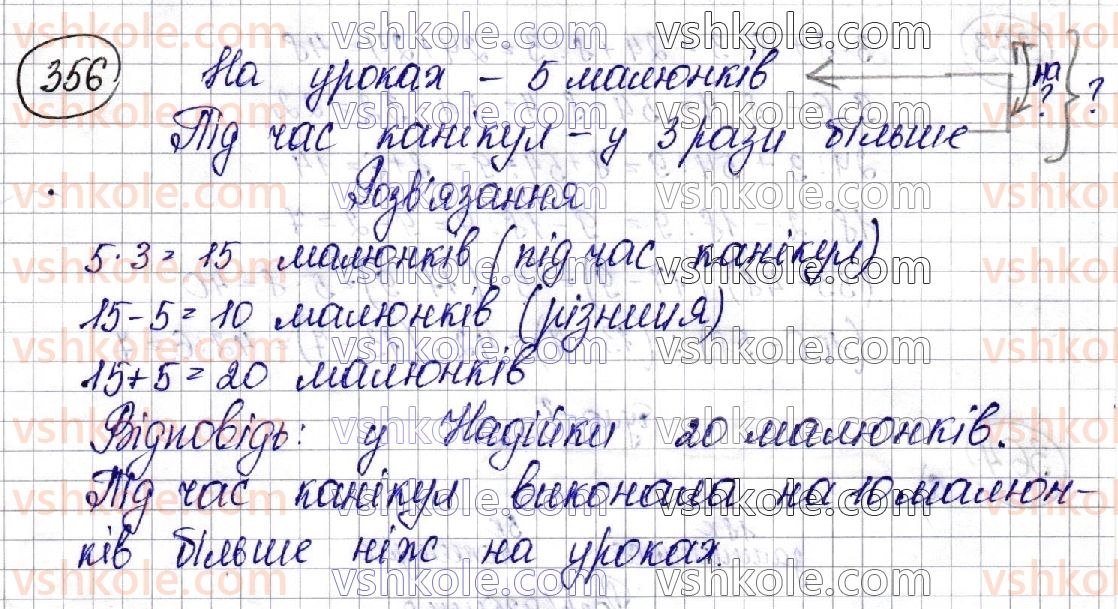 356
На уроках – 5 малюнків на ? ?
Під час канікул – у 3 рази більше
Розв'язання
5·3=15 малюнків (під час канікул)
15-5=10 малюнків (різниця)
15+5=20 малюнків
Відповідь: у Надійки 20 малюнків.
Під час канікул виконала на 10 малюн-
ків більше ніж на уроках.
vshkole.com